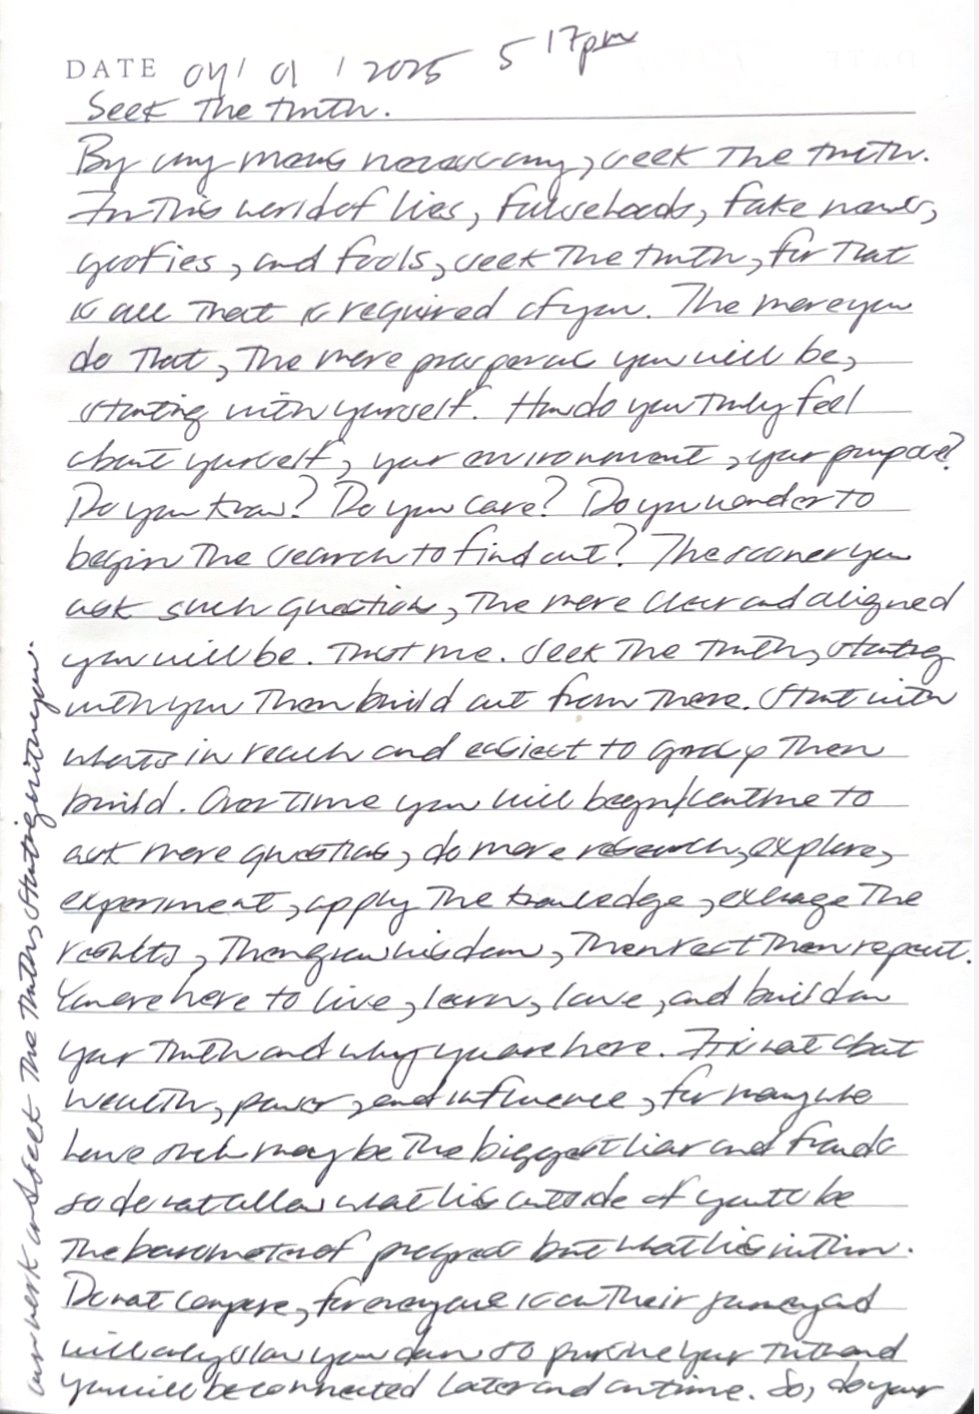 DATE 04/ 01 / 2025 5 17pm
Seek The truth.
By any means necessary, seek The truth.
In This world of lies, falsehoods, fake news,
goofies, and fools, seek The truth, for That
is all That is required of you. The more you
do That, The more prosperous you will be,
starting with yourself. How do you Truly feel
about yourself, your environment, your purpose?
Do you know? Do you care? Do you wonder to
begin The search to find out? The sooner you
ask such questions, The more clear and aligned
you will be. Trust me. Seek The Truth, starting
with you Then build out from There. Start with
whats in reach and easiest to grasp Then
build. Over Time you will begin/continue to
ask more questions, do more research, explore,
experiment, apply The knowledge, exchange The
results, Then grow wisdom, Then rest Then repeat.
You are here to live, learn, love, and build on
your Truth and why you are here. Fix not about
wealth, power, and influence, for many who
have such may be The biggest liar and frauds
so do not allow what lies outside of you to be
The barometer of progress but what lies within.
Do not compare, for everyone is on Their journey and
will only slow you down so pursue your Truth and
you will be connected later and on time. So, do your
own work and seek The Truth, starting with you.